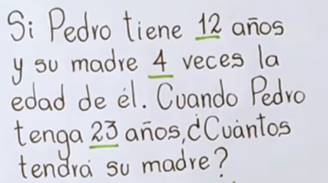 Si Pedro tiene 12 años
y su madre 4 veces la
edad de él. Cuando Pedro
tenga 23 años, ¿Cuántos
tendrá su madre?